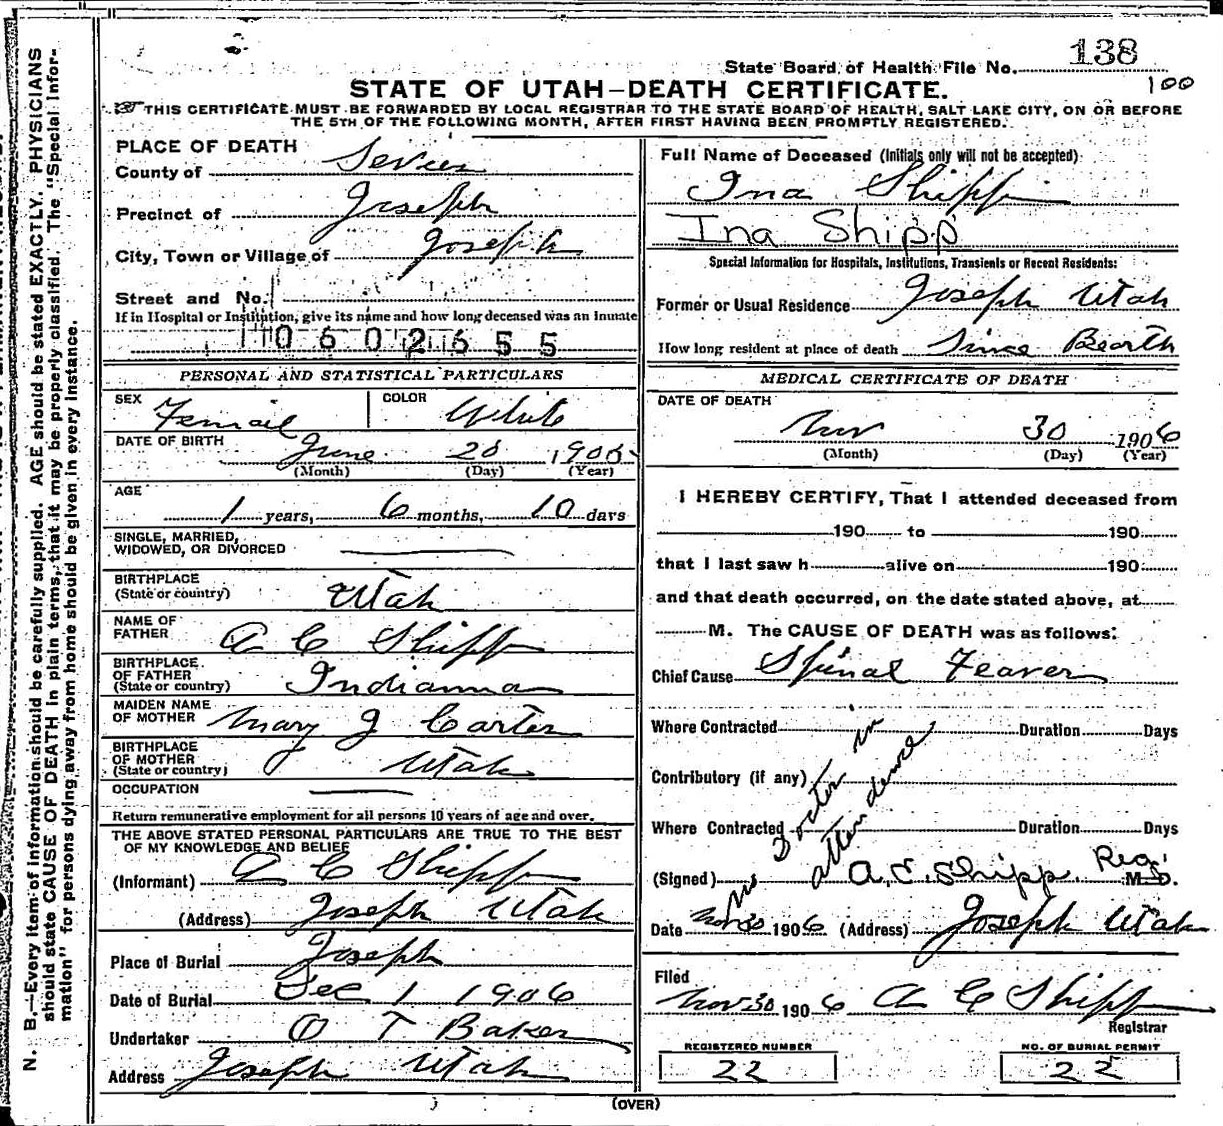 State Board of Health File No. 138
100
STATE OF UTAH—DEATH CERTIFICATE.
THIS CERTIFICATE MUST BE FORWARDED BY LOCAL REGISTRAR TO THE STATE BOARD OF HEALTH, SALT LAKE CITY, ON OR BEFORE
THE 5TH OF THE FOLLOWING MONTH, AFTER FIRST HAVING BEEN PROMPTLY REGISTERED.
N. B.—Every item of information should be carefully supplied. AGE should be stated EXACTLY. PHYSICIANS
should state CAUSE OF DEATH in plain terms, that it may be properly classified. The "Special Infor-
mation" for persons dying away from home should be given in every instance.
PLACE OF DEATH
County of Sevier
Precinct of Joseph
City, Town or Village of Joseph
Street and No.
If in Hospital or Institution, give its name and how long deceased was an inmate
0602655
PERSONAL AND STATISTICAL PARTICULARS
SEX Femail COLOR White
DATE OF BIRTH June 20 1905
(Month) (Day) (Year)
AGE
1 years, 6 months, 10 days
SINGLE, MARRIED,
WIDOWED, OR DIVORCED
BIRTHPLACE
(State or country) Utah
NAME OF
FATHER A C Shipp
BIRTHPLACE
OF FATHER
(State or country) Indianna
MAIDEN NAME
OF MOTHER Mary J Carter
BIRTHPLACE
OF MOTHER
(State or country) Utah
OCCUPATION
Return remunerative employment for all persons 10 years of age and over.
THE ABOVE STATED PERSONAL PARTICULARS ARE TRUE TO THE BEST
OF MY KNOWLEDGE AND BELIEF
(Informant) A C Shipp
(Address) Joseph Utah
Place of Burial Joseph
Date of Burial Dec 1 1906
Undertaker O T Baker
Address Joseph Utah
Full Name of Deceased (Initials only will not be accepted)
Ina Shipp
Ina Shipp
Special Information for Hospitals, Institutions, Transients or Recent Residents:
Former or Usual Residence Joseph Utah
How long resident at place of death Since Bearth
MEDICAL CERTIFICATE OF DEATH
DATE OF DEATH
Nov 30 1906
(Month) (Day) (Year)
I HEREBY CERTIFY, That I attended deceased from
190 to 190
that I last saw h alive on 190
and that death occurred, on the date stated above, at
M. The CAUSE OF DEATH was as follows:
Chief Cause Spinal Feaver
Where Contracted Duration Days
Contributory (if any)
Where Contracted Duration Days
no Doctor in
attendence
(Signed) A. C. Shipp. Reg. M. D.
Date Nov 30 1906 (Address) Joseph Utah
Filed
Nov 30 1906 A C Shipp
Registrar
REGISTERED NUMBER
22
NO. OF BURIAL PERMIT
22
(OVER)